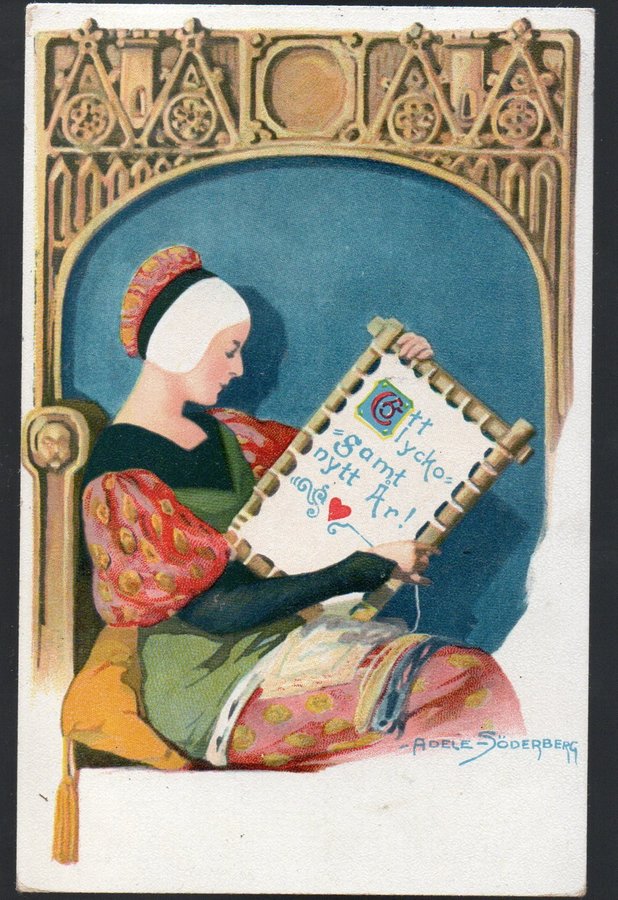 Ett
lycko=
=samt
nytt År!
-ADELE-SÖDERBERG